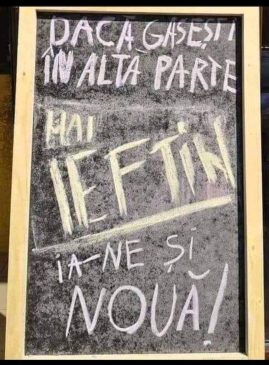 DACA GASEȘTI
ÎN ALTA PARTE
MAI
IEFTIN
IA-NE ȘI
NOUĂ!